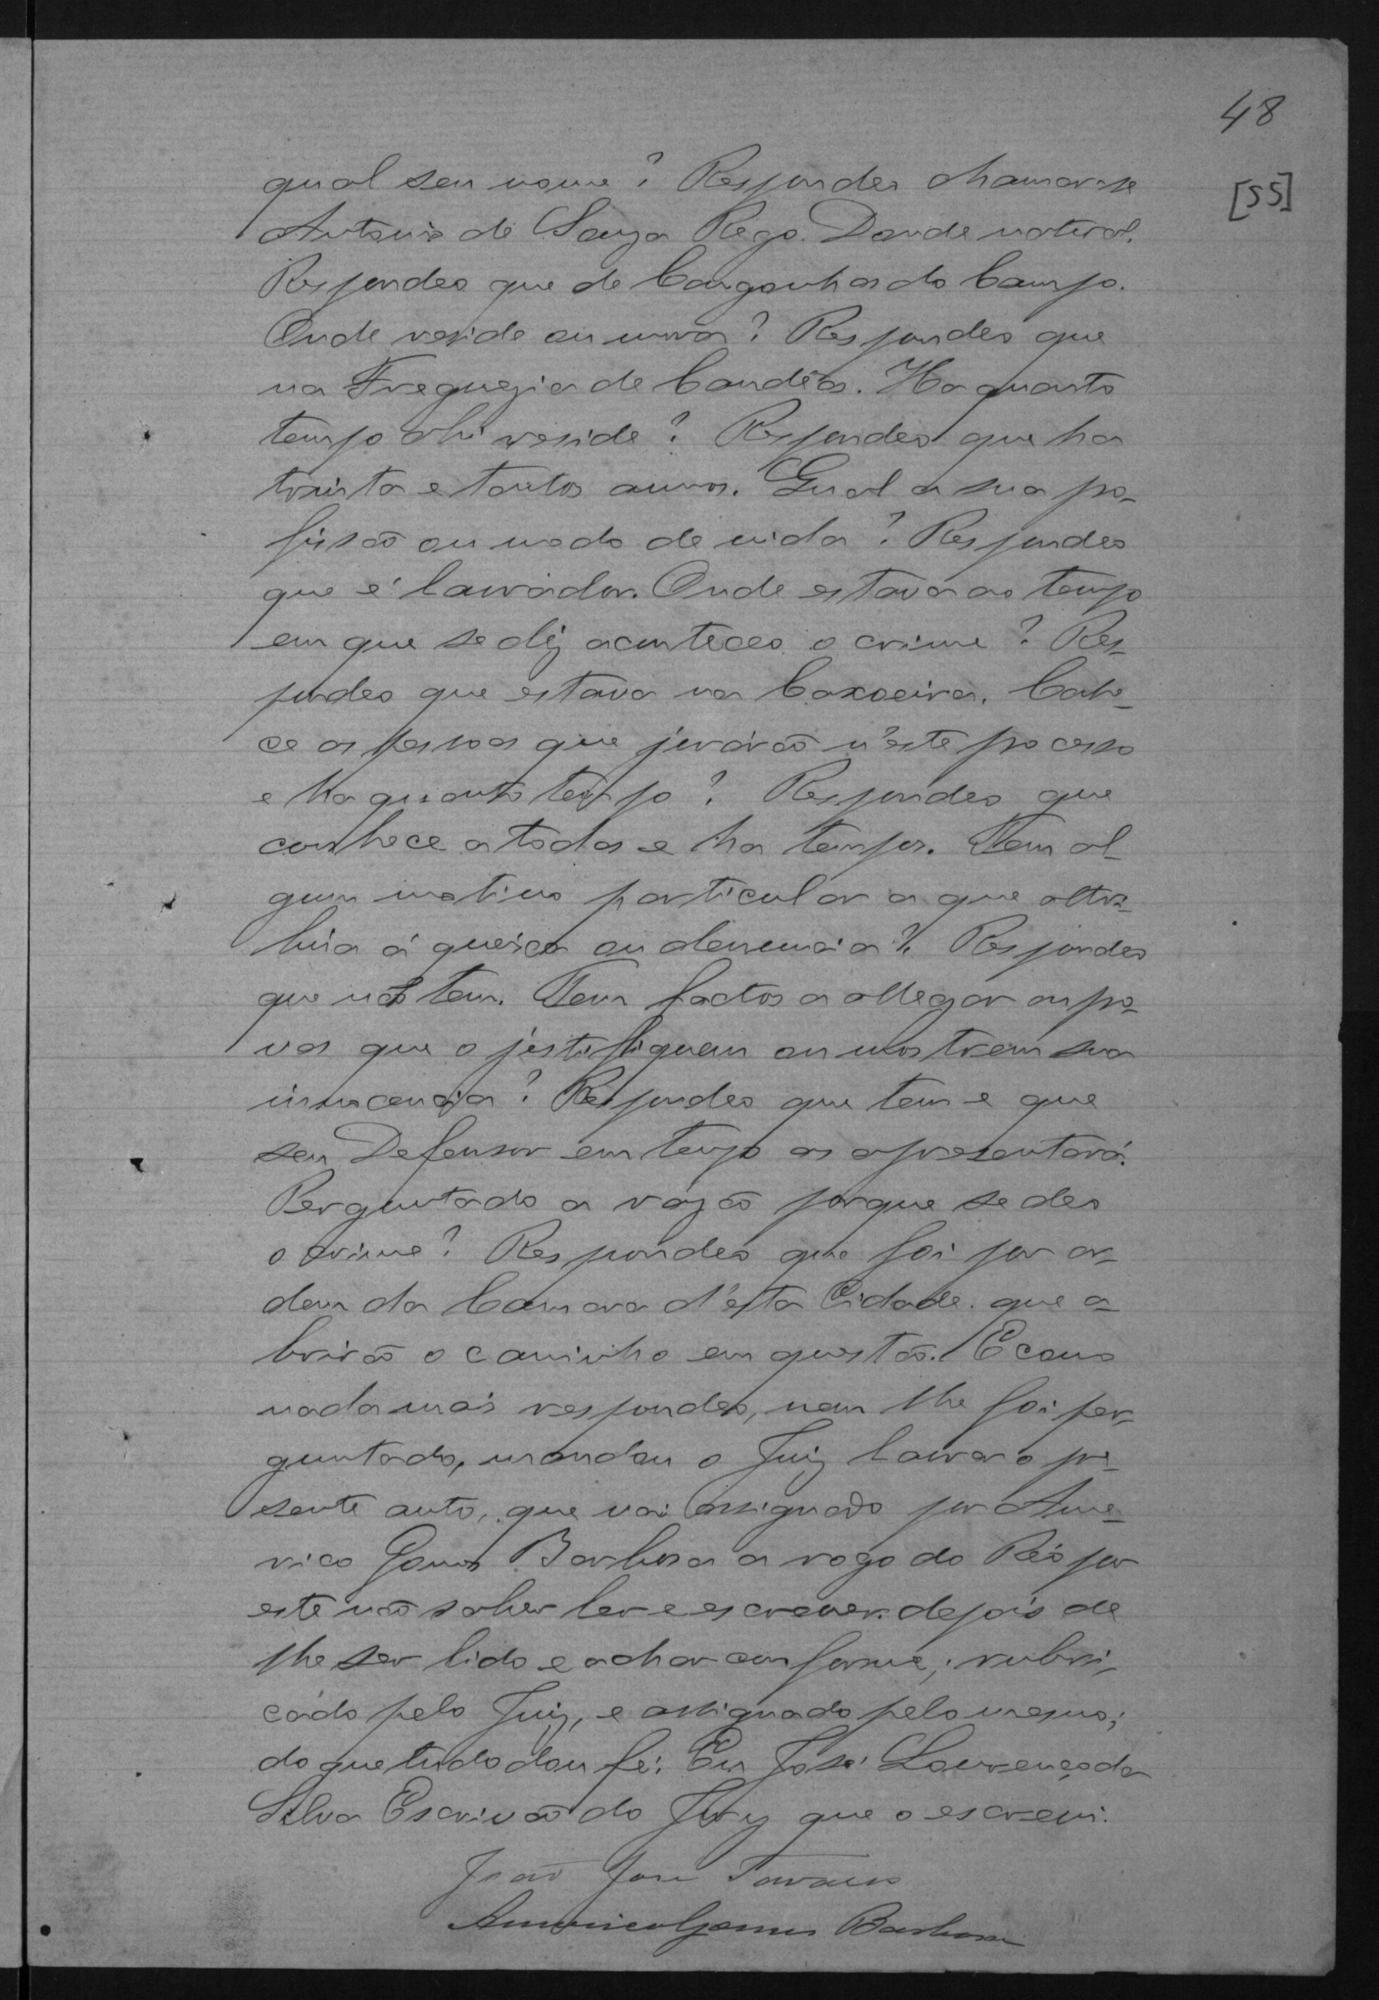 48
[55]
qual seu nome? Respondeo chamar-se
Antonio de Souza Rego. Donde natural.
Respondeo que de Congonhas do Campo.
Onde reside ou mora? Respondeo que
na Freguezia de Candêas. Ha quanto
tempo ahi reside? Respondeo que ha
trinta e tantos annos. Qual a sua pro-
fissão ou modo de vida? Respondeo
que é lavrador. Onde estava ao tempo
em que se diz aconteceo o crime? Res-
pondeo que estava na Caxoeira. Conhe-
ce as pessoas que jurárão n'este processo
e ha quanto tempo? Respondeo que
conhece a todas e ha tempos. Tem al-
gum motivo particular a que attri-
búa á queixa ou denuncia? Respondeo
que não tem. Tem factos a allegar ou pro-
vas que o justifiquem ou mostrem sua
innocencia? Respondeo que tem e que
seu Defensor em tempo as apresentará.
Perguntado a razão porque se deo
o crime? Respondeo que foi por or-
dem da Camara d'esta Cidade que a-
brirão o caminho em questão. E como
nada mais respondeo, nem lhe foi per-
guntado, mandou o Juiz lavrar o pre-
sente auto, que vai assignado por Ame-
rico Gomes Barbosa a rogo do Réo por
este não saber ler e escrever depois de
lhe ser lido e achar conforme; rubri-
cado pelo Juiz, e assignado pelo mesmo;
do que tudo dou fé. Eu José Lourenço da
Silva Escrivão do Jury que o escrevi.
João José Tavares
Americo Gomes Barbosa